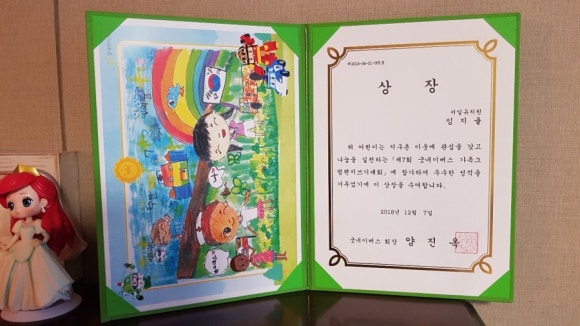 상 장
임지율
위 어린이는 지구촌 이웃에 관심을 갖고
나눔을 실천하는 「제7회 굿네이버스 가족그
림편지쓰기대회」에 참가하여 우수한 성적을
거두었기에 이 상장을 수여합니다.
2018년 12월 7일
굿네이버스 회장 양 진 옥